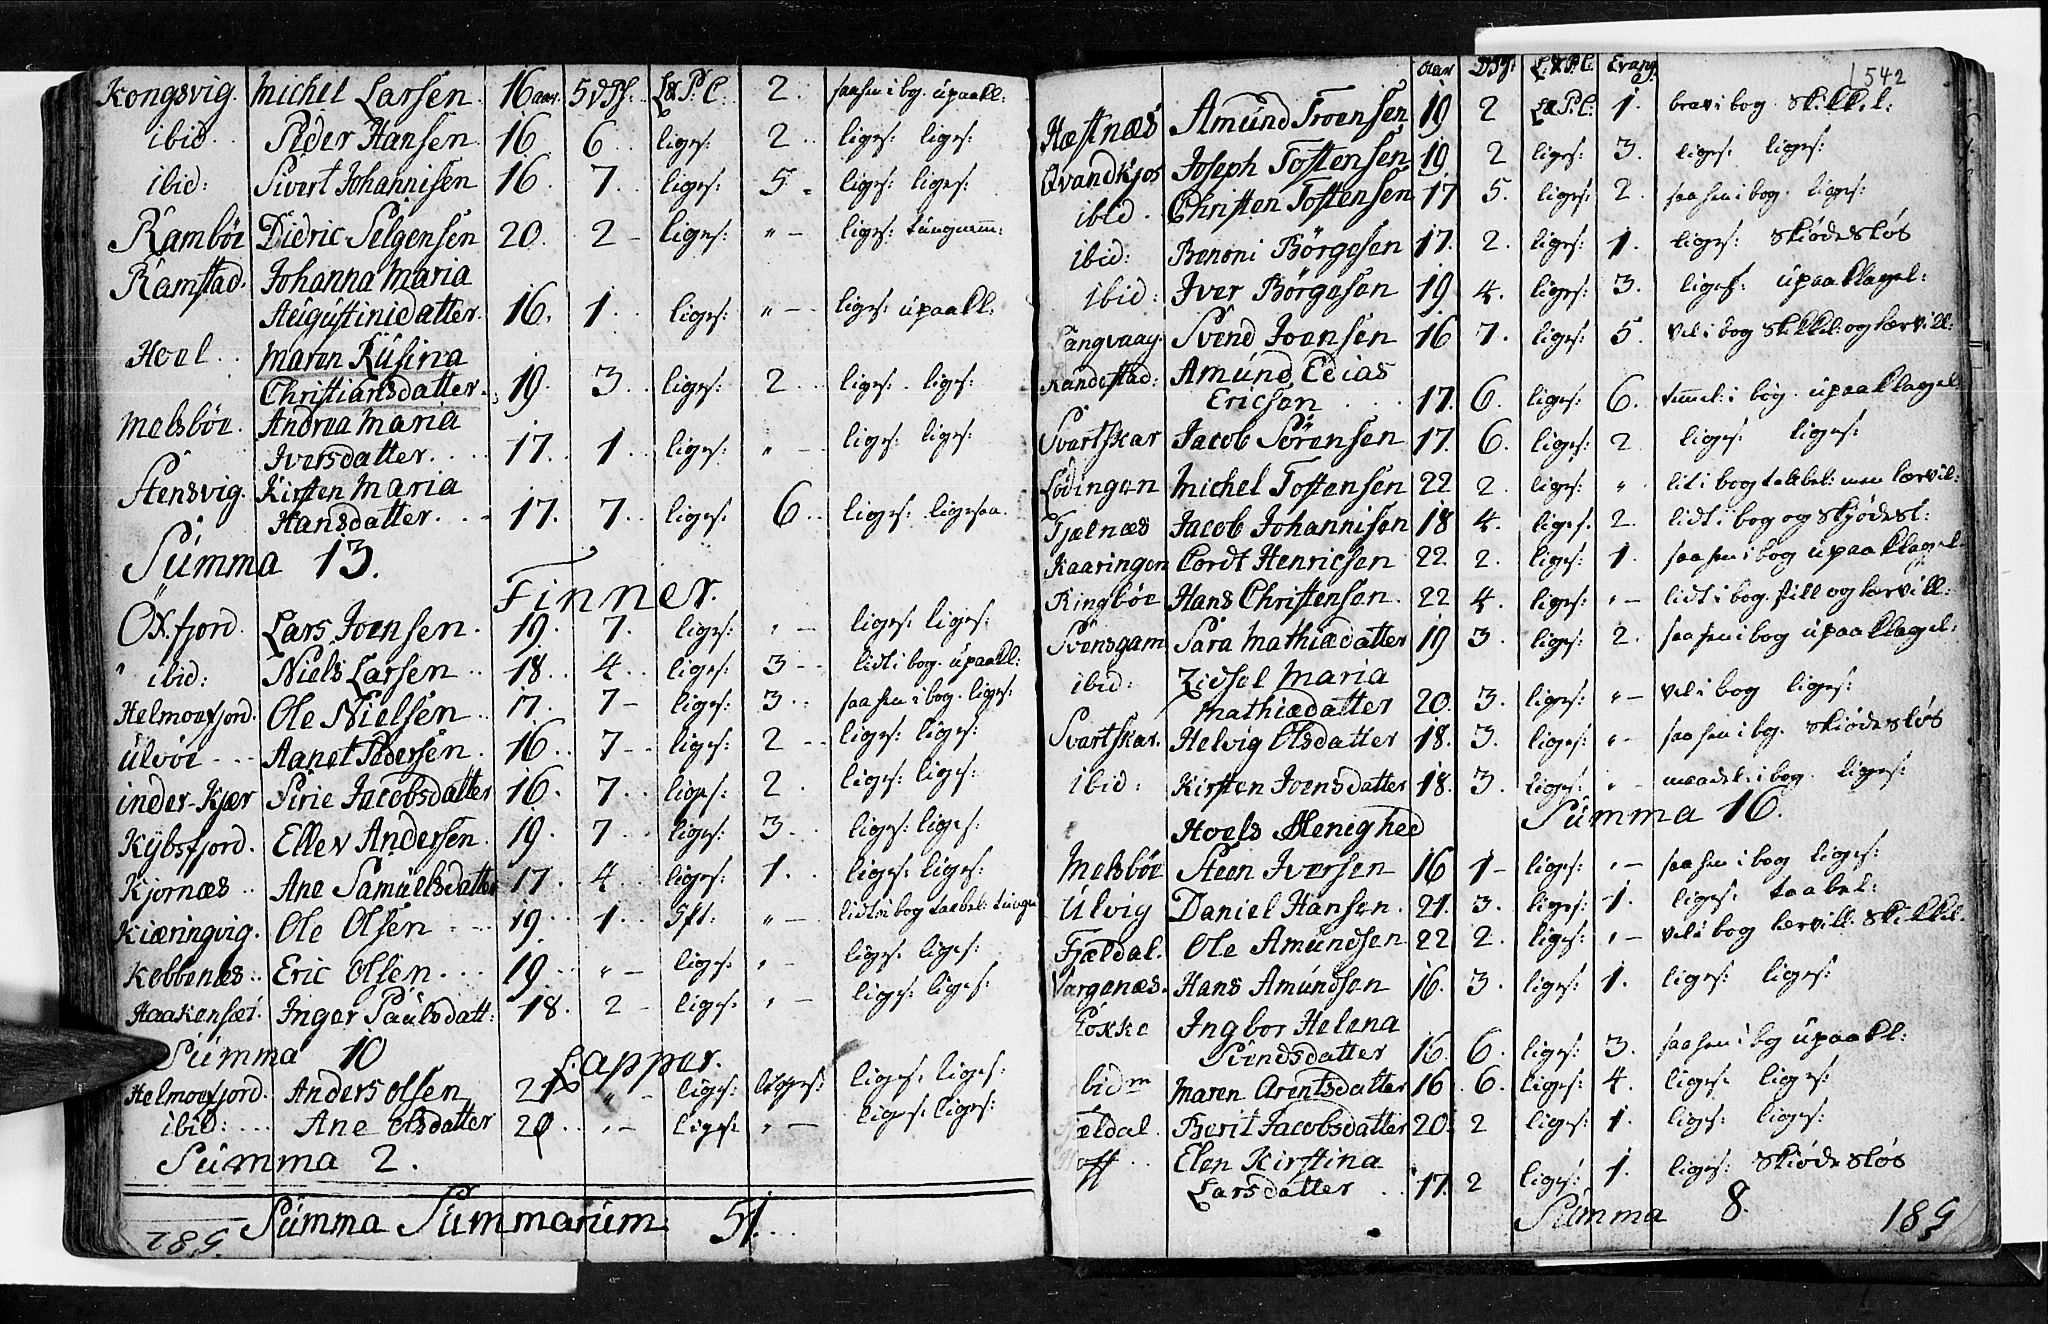 Kongsvig. Michel Larsen. 16 aar. 5 D Ps: L & P. C. 2. saa hen i bog. upaakl:
ibid. Peder Hansen. 16. 6. liges: 2. liges: liges:
ibid: Sivert Johannisen 16. 7. liges: 5. liges: liges:
Ramböe Didric Selgensen 20. 2 – liges: " – liges: tungnem:
Ramstad. Johanna Maria
Augustinidatter. 16. 1. liges: " – liges: upaakl:
Hoel Maren Rusina
Christiansdatter. 19. 3. liges: 2. liges. liges:
Melsböe. Andrea Maria
Iversdatter. 17. 1. liges: " – liges: liges:
Stensvig. Kirsten Maria
Hansdatter. 17. 7. liges: 6. liges: ligesaa.
Summa 13.
Finner.
Oxfjord. Lars Joensen. 19. 7. liges: " – liges: liges:
ibid: Niels Larsen. 18. 4. liges: 3 – lidt i bog. upaakl:
Helmoefjord. Ole Nielsen 17. 7 – liges: 3. saa hen i bog. liges:
Ulvöe Aanet Pedersen. 16. 7 – liges: 2 – liges: liges:
inder-Kjær Sirie Jacobsdatter 16. 7. liges: 2. liges: liges:
Kybsfjord. Ellev Andersen. 19. 7. liges: 3. liges: liges:
Kjornæs Ane Samuelsdatter 17. 4. liges: 1. liges: liges:
Kiæringvig. Ole Olsen 19. 1. Ift: " – lidt i bog taabel: tungn
Kobbenæs Eric Olsen. 19. " – liges: " – liges: liges:
Haakensæt. Inger Paulsdatt: 18. 2 – liges: " – liges: liges:
Summa 10
Lapper.
Helmoefjord. Anders Olsen 21 " – liges: liges: liges: liges:
ibid: Ane Olsdatter 20. " – liges: " – liges: liges:
Summa 2.
Summa Summarum. 51.
Aar DSy: L. & P. C. Evang. 1542
Hæstnæs Amund Troensen 19 2 L & P. C. 1. brav i bog. skikkel:
Qvandkjos Joseph Tostensen 19 2 liges: 3. liges: liges:
ibid. Christen Tostensen 17 5. liges: 2. saa hen i bog. liges:
ibid: Benoni Börgesen 17. 2. liges: 1. liges: skiödeslös
ibid: Iver Börgesen 19 4. liges: 3. liges: upaaklagel:
Svend Joensen 16 7. liges: 5. vel i bog skikkel: og lærvill:
Randestad: Amund Elias
Ericsen 17. 6. liges: 6. i bog. upaaklagel:
Svartskar Jacob Sörensen 17. 6. liges: 2 liges: liges:
Lödingen Michel Tostensen 22 2. liges: " lit i bog taabel: men lærvil:
Fjælnæs Jacob Johannisen 18 4. liges. 2. lidt i bog og skjödesl:
Kaaringen Cordt Henricsen 22. 2. liges: 1. saa hen i bog upaaklagel
Ringböe Hans Christensen. 22 4. liges: " – lidt i bog. still og lærvill:
Svensgam Sara Mathiædatter 19 3. liges: 2. saa hen i bog upaaklagel:
ibid: Zidsel Maria
Mathiædatter 20. 3. liges: " – vel i bog liges:
Svartskar. Helvig Olsdatter 18. 3. liges: " – saa hen i bog. skiödeslös
ibid: Kirsten Joensdatter 18. 3. liges: " maadel: i bog. liges:
Summa 16.
Hoels Menighed
Melsböe Steen Iversen 16 1 – liges: " – saa hen i bog liges:
Ulvig Daniel Hansen. 21. 3. liges: 1. liges: taabel:
Fjældal. Ole Amundsen 22 2. liges: " – vel i bog lærvill: skikkel.
Vargenæs. Hans Amundsen 16. 3. liges: 1. liges: liges:
Ingbor Helena
Svendsdatter 16. 6. liges: 3. saa hen i bog upaakl:
Maren Arentsdatter 16. 6. liges: 4. liges: liges:
ældal. Berit Jacobsdatter 20. 2 liges: 1. liges: liges:
Elen Kirstina
Larsdatter 17. 2 liges: 1. liges: skiödeslös
Summa 8.
189